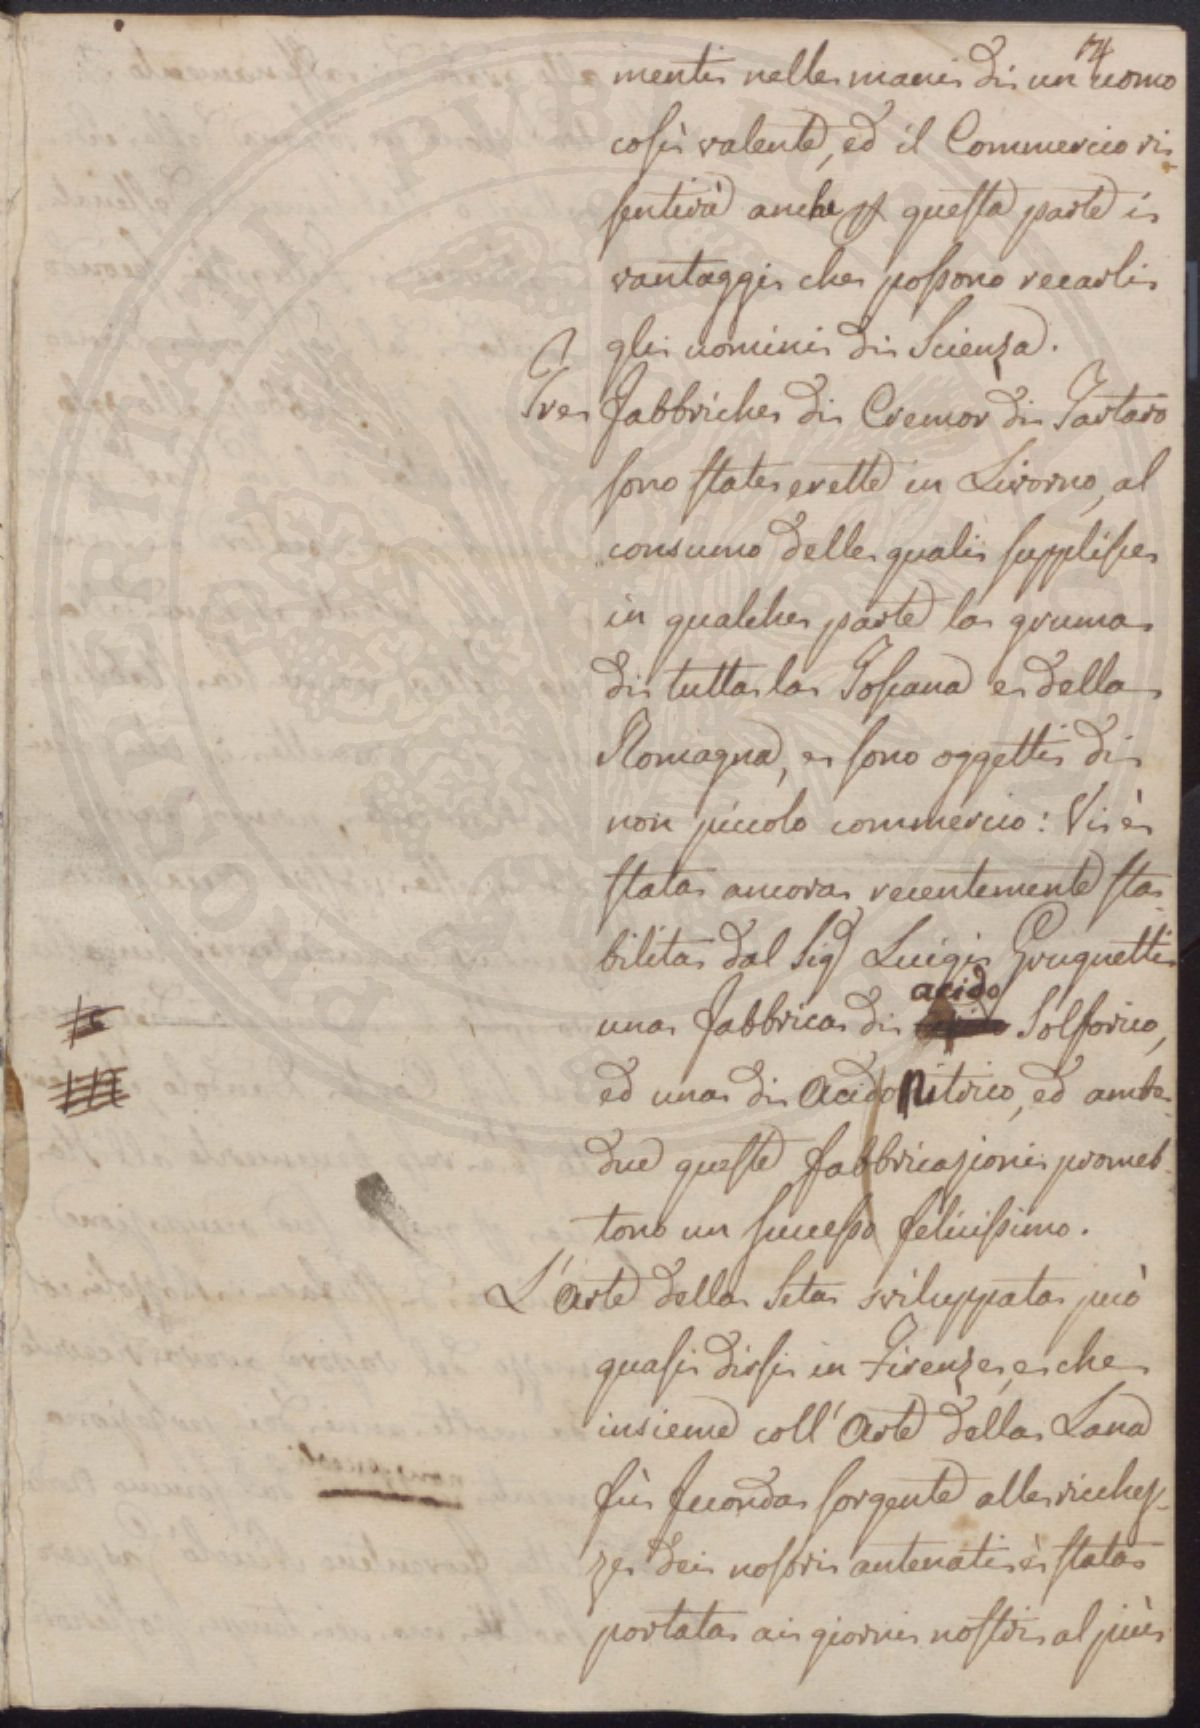 14
menti nelle mani di un uomo
così valente, ed il Commercio ri-
sentirà anche p questa parte i
vantaggi che possono recarli
gli uomini di Scienza.
Tre fabbriche di Cremor di Tartaro
sono state erette in Livorno, al
consumo delle quali supplisce
in qualche parte la gruma
di tutta la Toscana e della
Romagna, e sono oggetti di
non piccolo commercio: Vi è
stata ancora recentemente sta-
bilita dal Sig Luigi Gruguetti
una fabbrica di acido Solforico,
ed una di Acido Nitrico, ed ambe-
due queste fabbricazioni promet-
tono un successo felicissimo.
L'Arte della Seta sviluppata può
quasi dirsi in Firenze, e che
insieme coll'Arte della Lana
fù feconda sorgente alle ricchez-
ze dei nostri antenati è stata
portata ai giorni nostri al più